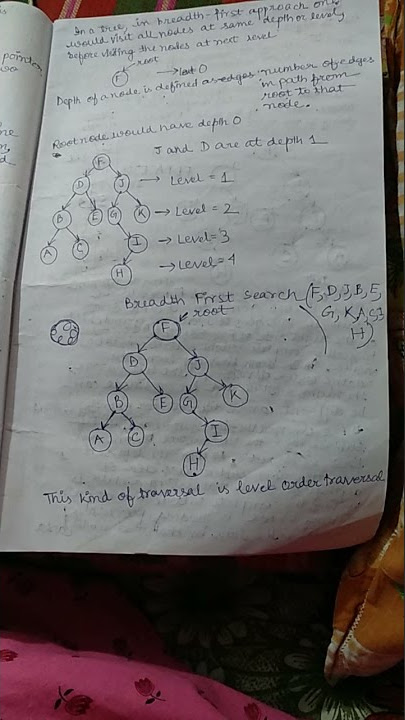 In a tree, in breadth-first approach one
would visit all nodes at same depth or level
before visiting the nodes at next level
root
F
Depth of a node is defined as edges number of edges
in path from
root to that
node.
Root node would have depth 0
J and D are at depth 1
F
D J → Level = 1
B E G K → Level = 2
A C I → Level = 3
H → Level = 4
Breadth First Search (F, D, J, B, E,
G, K, A, C, I
H)
root
F
D J
B E G K
A C I
H
This kind of traversal is level order traversal